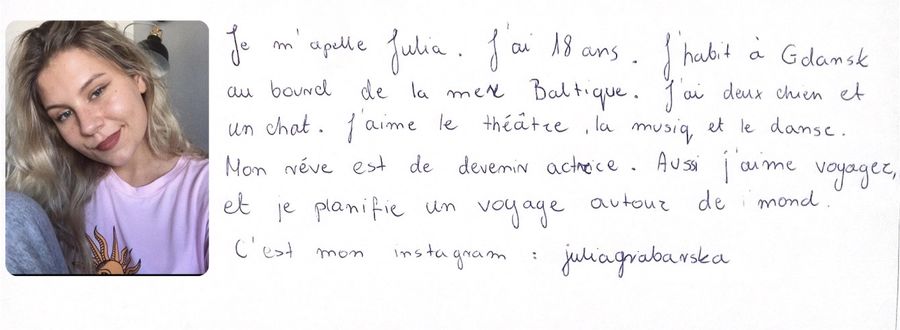 Je m'apelle Julia. J'ai 18 ans. J'habit à Gdansk
au bourd de la mer Baltique. J'ai deux chien et
un chat. J'aime le théâtre, la musiq et le danse.
Mon réve est de devenir actrice. Aussi j'aime voyager,
et je planifie un voyage autour de mond.
C'est mon instagram : juliagrabarska